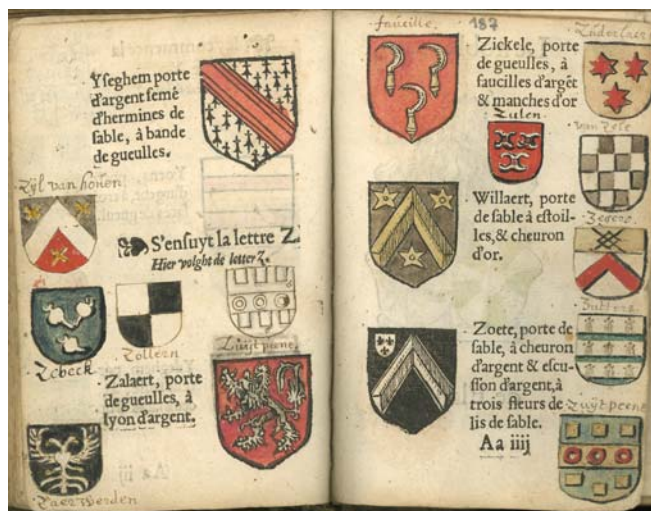 Yseghem porte
d'argent semé
d'hermines de
sable, à bande
de gueulles.
Zÿl van houen
S'ensuyt la lettre Z
Hier volght de letter Z.
Zebeeck
Zollern
Zuijtpeene
Zalaert, porte
de gueulles, à
lyon d'argent.
Zaerwerden
faucille.
187
Zickele, porte
de gueulles, à
faucilles d'argẽt
& manches d'or
Zulen
van Zele
Willaert, porte
de sable à estoil-
les, & cheuron
d'or.
Zegers
Zoete, porte de
sable, à cheuron
d'argent & escu-
sson d'argent, à
trois fleurs de
lis de sable.
Aa iiij
Zuÿtpeene